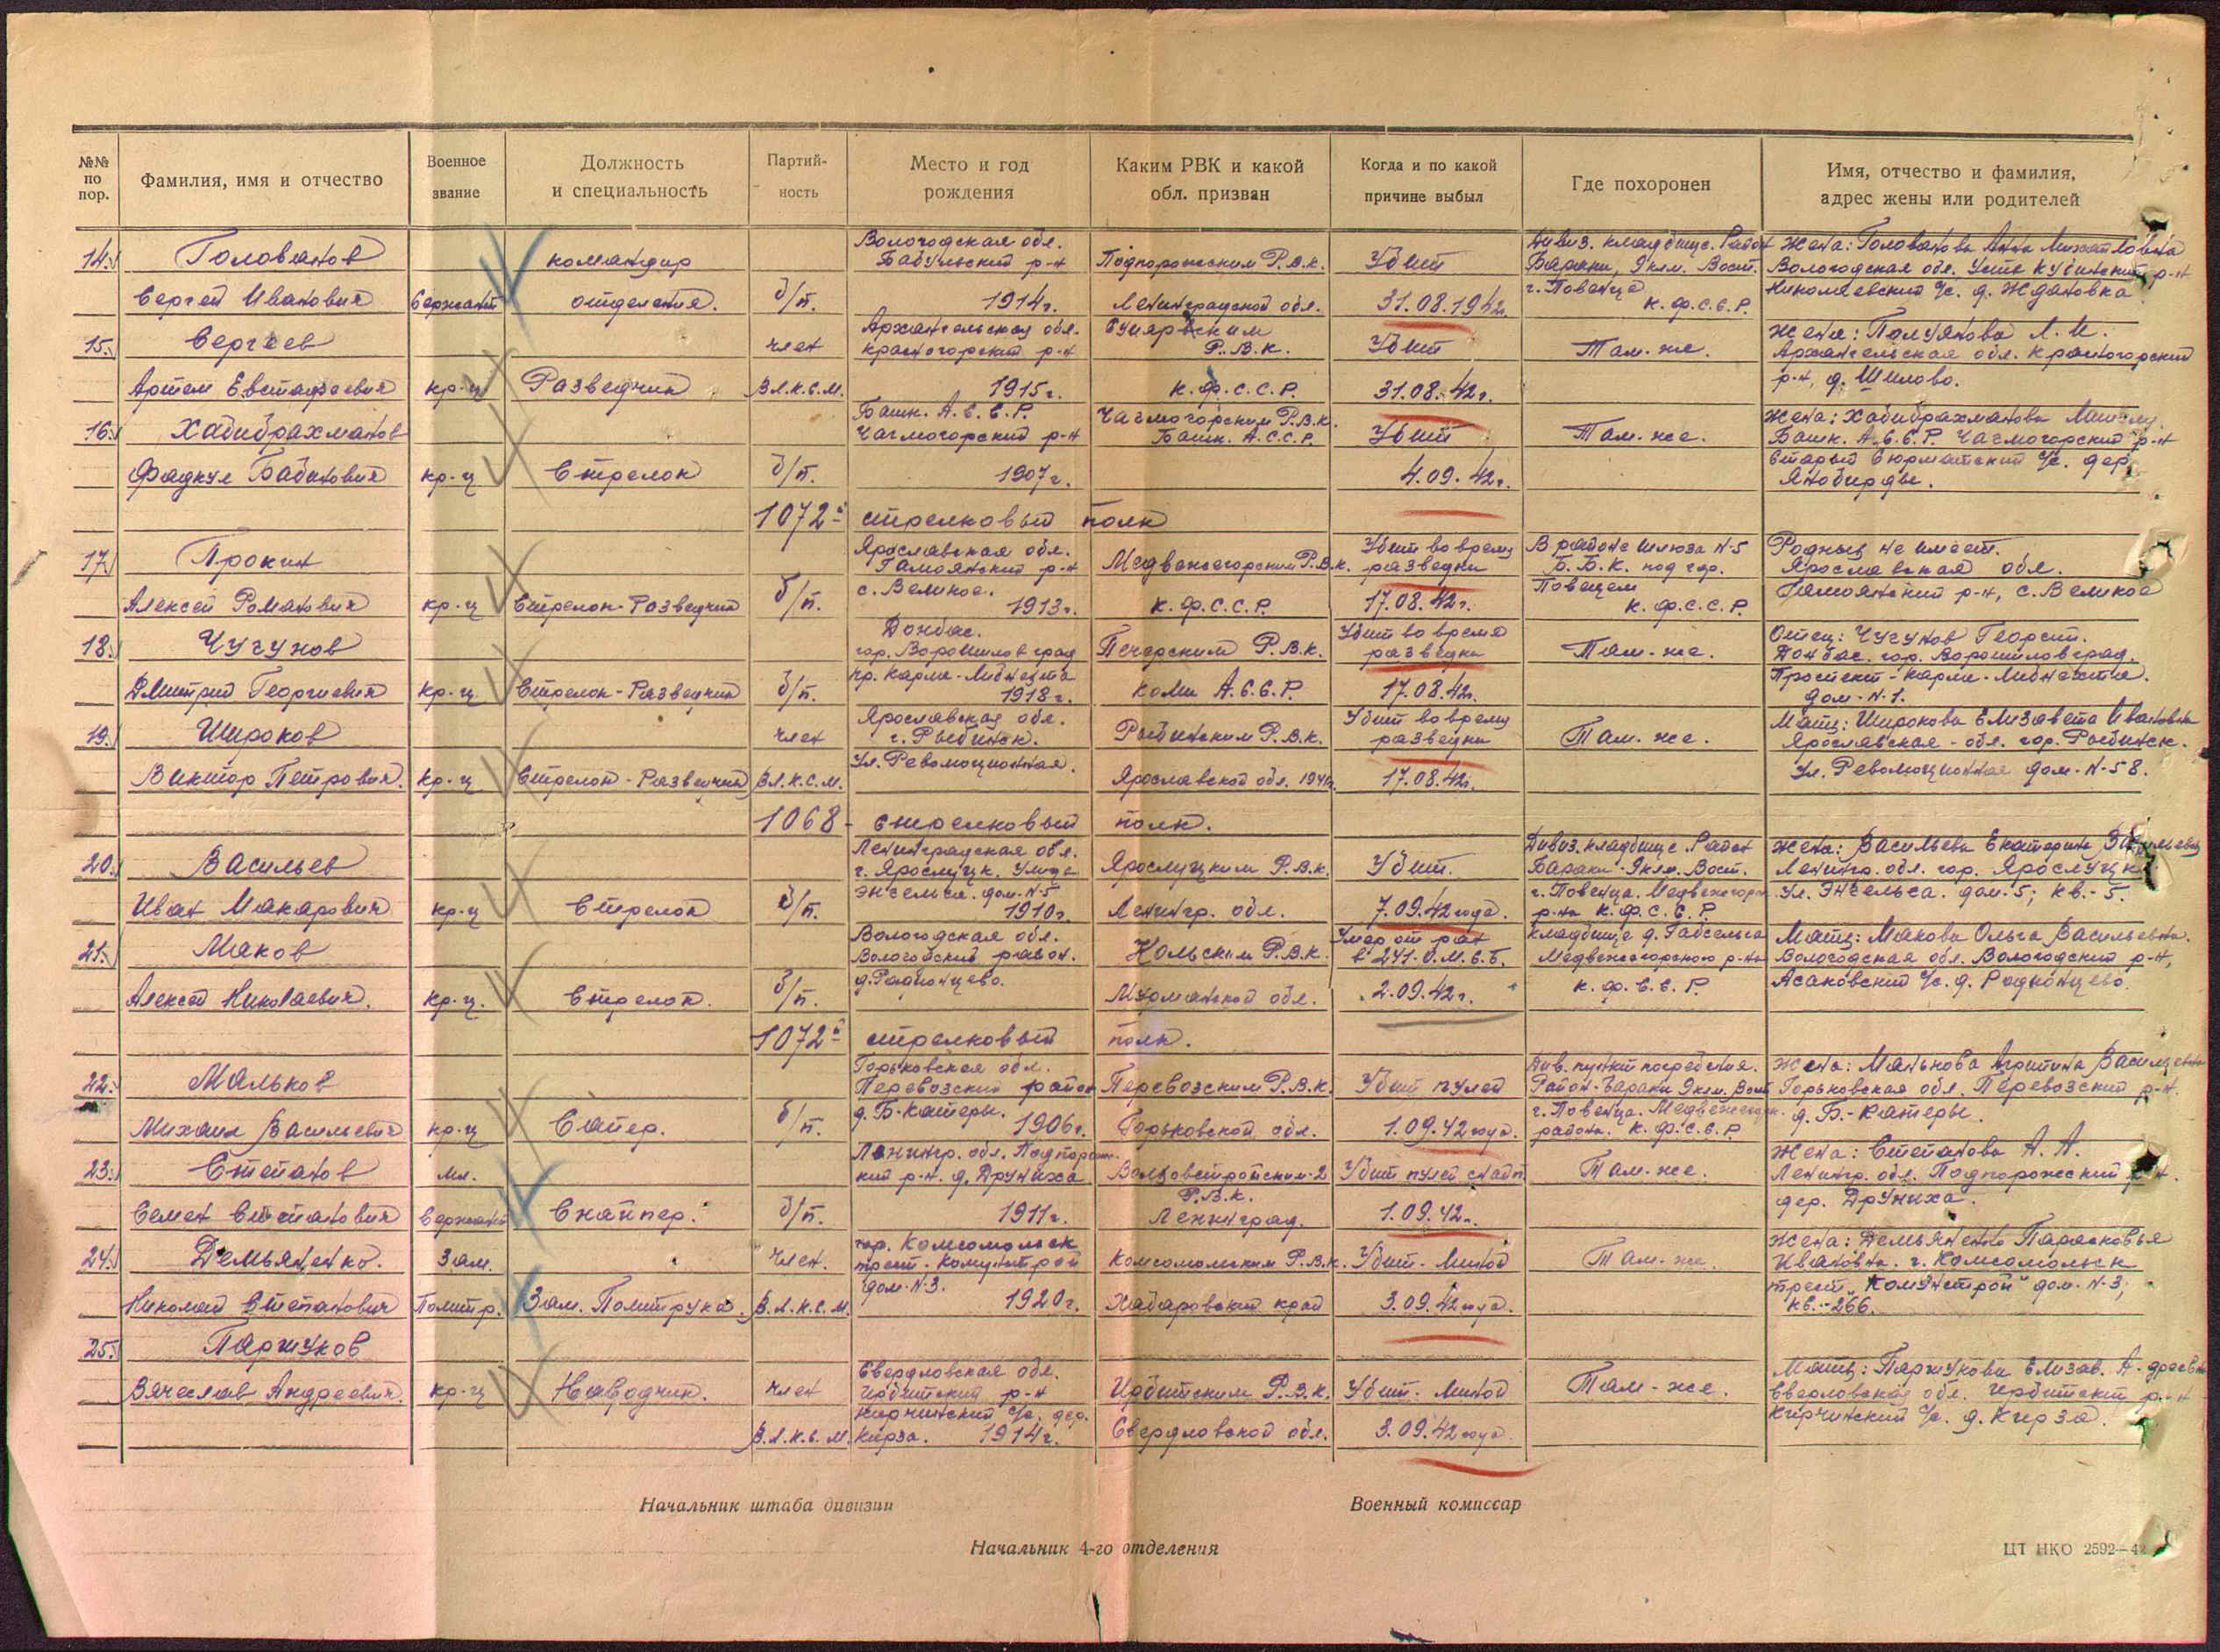 №№ по пор.
Фамилия, имя и отчество
Военное звание
Должность и специальность
Партий- ность
Место и год рождения
Каким РВК и какой обл. призван
Когда и по какой причине выбыл
Где похоронен
Имя, отчество и фамилия, адрес жены или родителей
14. Голованов Сергей Иванович
Сержант
командир отделения.
б/п.
Вологодская обл.
р-н
1914г.
Подпорожским Р.В.К.
Ленинградской обл.
Убит
31.08.1942г.
Дивиз. кладбище. Район
Бараки, 9 клм. Вост.
г. Повенца
К.Ф.С.С.Р.
Жена: Голованова Анна Михайловна
Вологодская обл. Усть Кубинский р-н
Николаевский с/с. д. Ждановка
15. Сергеев Артем Евстафеевич
кр-ц
Разведчик
член В.Л.К.С.М.
Архангельская обл.
Красногорский р-н
1915г.
Р.В.К.
К.Ф.С.С.Р.
Убит
31.08.42г.
Там-же.
Жена: Полуянова Л.И.
Архангельская обл. Красногорский
р-н, д. Шилово.
16. Хабибрахманов
кр-ц
Стрелок
б/п.
Башк. А.С.С.Р.
Чагмогорский р-н
1907г.
Чагмогорским Р.В.К.
Башк. А.С.С.Р.
Убит
4.09.42г.
Там-же.
Жена: Хабибрахманова
Башк. А.С.С.Р. Чагмогорский р-н
Старый с/с. дер.
1072й стрелковый полк
17. Прокин Алексей Романович
кр-ц
Стрелок-Разведчик
б/п.
Ярославская обл.
р-н
с. Великое.
1913г.
Медвежегорским Р.В.К.
К.Ф.С.С.Р.
Убит во время
разведки
17.08.42г.
В районе шлюза N-5
Б.Б.К. под гор.
Повенцем
К.Ф.С.С.Р.
Родных не имеет.
Ярославская обл.
р-н, с. Великое
18. Чугунов Дмитрий Георгиевич
кр-ц
Стрелок-Разведчик
б/п.
Донбас.
гор. Ворошиловград
пр. Карла-Либнехта
1918г.
Печерским Р.В.К.
Коми А.С.С.Р.
Убит во время
разведки
17.08.42г.
Там-же.
Отец: Чугунов Георгий.
Донбас. гор. Ворошиловград.
Проспект-Карла-Либнехта.
дом-N-1.
19. Широков Виктор Петрович.
кр-ц
Стрелок-Разведчик
член В.Л.К.С.М.
Ярославская обл.
г. Рыбинск.
Ул. Революционная.
Рыбинским Р.В.К.
Ярославской обл. 1941г.
Убит во время
разведки
17.08.42г.
Там-же.
Мать: Широкова Елизавета Ивановна
Ярославская-обл. гор. Рыбинск.
Ул. Революционная дом-N-58.
1068- стрелковый полк.
20. Васильев Иван Макарович
кр-ц
Стрелок
б/п.
Ленинградская обл.
г. Ярослуцк. Улица
Энгельса. дом-N-5
1910г.
Ярослуцким Р.В.К.
Ленингр. обл.
Убит.
7.09.42 года.
Дивиз. кладбище. Район
Бараки-9клм. Вост.
г. Повенца. Медвежегор
р-на К.Ф.С.С.Р.
Жена: Васильева Екатерина
Ленингр. обл. гор. Ярослуцк
Ул. Энгельса. дом-5; кв.-5.
21. Маков Алексей Николаевич.
кр-ц.
Стрелок.
б/п.
Вологодская обл.
Вологодский район.
д. Радионцево.
Кольским Р.В.К.
Мурманской обл.
Умер от ран
в 241-О.М.С.Б.
2.09.42г.
Кладбище д. Габсельга
Медвежегорского р-на
К.Ф.С.С.Р.
Мать: Макова Ольга Васильевна.
Вологодская обл. Вологодский р-н,
Асаковский с/с. д. Радионцево.
1072й стрелковый полк.
22. Мальков Михаил Васильевич
кр-ц
Сапер.
б/п.
Горьковская обл.
Перевозский район
д. Б-Кемары.
1906г.
Перевозским Р.В.К.
Горьковской обл.
Убит пулей
1.09.42 года.
Див. пункт погребения.
Район-Бараки 9клм. Вост
г. Повенца. Медвежегор.
района. К.Ф.С.С.Р.
Жена: Малькова Агрипина
Горьковская обл. Перевозский р-н.
д. Б.-Кемары.
23. Степанов Семен Степанович
мл. Сержант
Снайпер.
б/п.
Ленингр. обл. Подпорож-
кий р-н. д. Друниха
1911г.
Волховстройским-2
Р.В.К.
Ленинград.
Убит пулей снайп
1.09.42г.
Там-же.
Жена: Степанова А.А.
Ленингр. обл. Подпорожеский р-н.
дер. Друниха.
24. Демьяненко. Николай Степанович
Зам. Политр.
Зам. Политрука.
член. В.Л.К.С.М.
гор. Комсомольск
трест-Комунстрой
дом-N-3.
1920г.
Комсомольским Р.В.К.
Хабаровский край
Убит-миной
3.09.42 года.
Там-же.
Жена: Демьяненко Парасковья
Ивановна. г. Комсомольск
трест „Комунстрой" дом-N-3;
кв.-266.
25. Паршуков Вячеслав Андреевич.
кр-ц
Наводчик.
член В.Л.К.С.М.
Свердловская обл.
Ирбитский р-н
Кирчинский с/с. дер.
Кирза. 1914г.
Ирбитским Р.В.К.
Свердловской обл.
Убит-миной
3.09.42 года.
Там-же.
Мать: Паршукова Елизав.
Свердловская обл. Ирбитский р-н
Кирчинский с/с. д. Кирза.
Начальник штаба дивизии
Военный комиссар
Начальник 4-го отделения
ЦТ НКО 2592—42